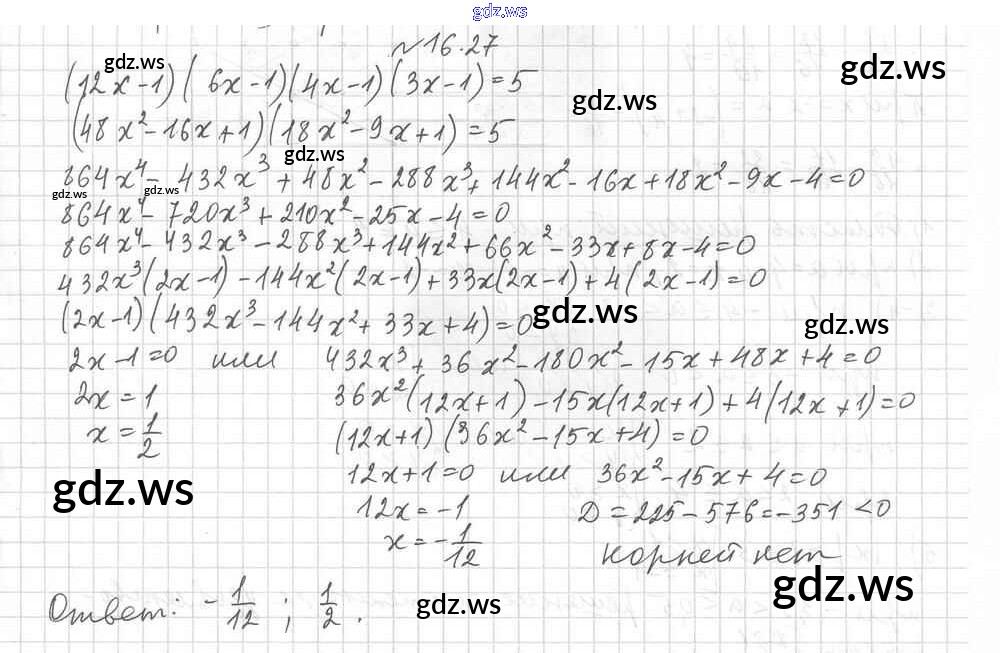 gdz.ws
№16.27
gdz.ws gdz.ws
(12x-1)(6x-1)(4x-1)(3x-1)=5
gdz.ws
(48x²-16x+1)(18x²-9x+1)=5
gdz.ws
864x⁴-432x³+48x²-288x³+144x²-16x+18x²-9x-4=0
gdz.ws gdz.ws
864x⁴-720x³+210x²-25x-4=0
864x⁴-432x³-288x³+144x²+66x²-33x+8x-4=0
432x³(2x-1)-144x²(2x-1)+33x(2x-1)+4(2x-1)=0
(2x-1)(432x³-144x²+33x+4)=0
gdz.ws gdz.ws
2x-1=0 или 432x³+36x²-180x²-15x+48x+4=0
2x=1 36x²(12x+1)-15x(12x+1)+4(12x+1)=0
x=1/2 (12x+1)(36x²-15x+4)=0
gdz.ws
12x+1=0 или 36x²-15x+4=0
12x=-1 D=225-576=-351<0
x=-1/12 корней нет
gdz.ws
Ответ: -1/12; 1/2.
gdz.ws